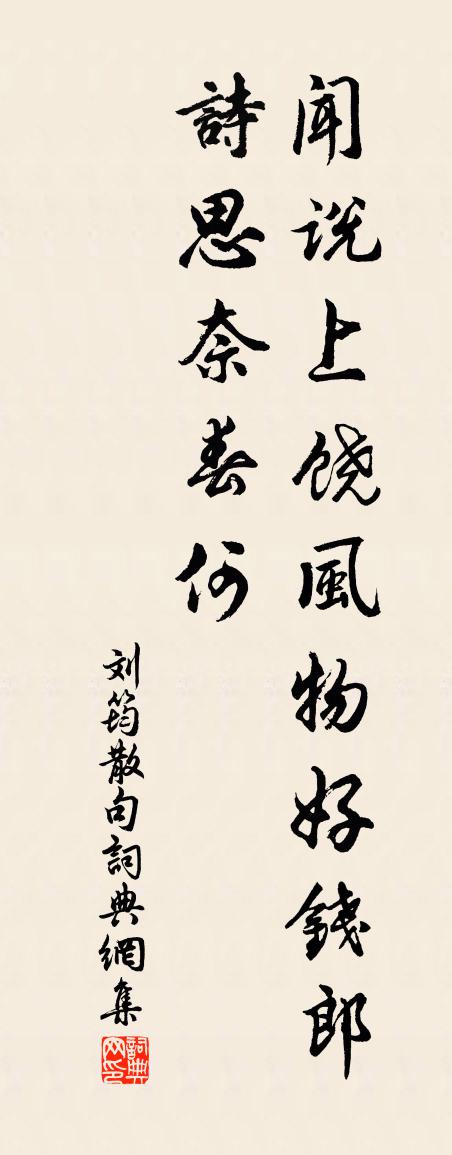 闻説上饶風物好錢郎
詩思奈春何
刘筠散句詞典網集
詞典网印